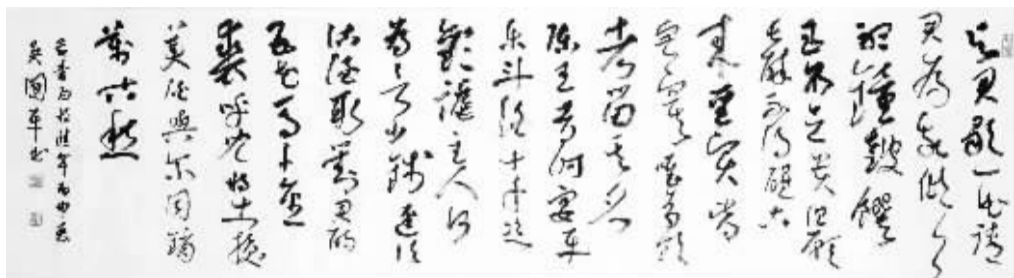 與君歌一曲請
君為我傾耳
聽鐘鼓饌
玉不足貴但願
長醉不復醒古
來聖賢皆
寂寞唯有飲
者留其名
陳王昔時宴平
樂斗酒十千恣
歡謔主人何
為言少錢逕須
沽取對君酌
五花馬千金
裘呼兒將出換
美酒與爾同銷
萬古愁